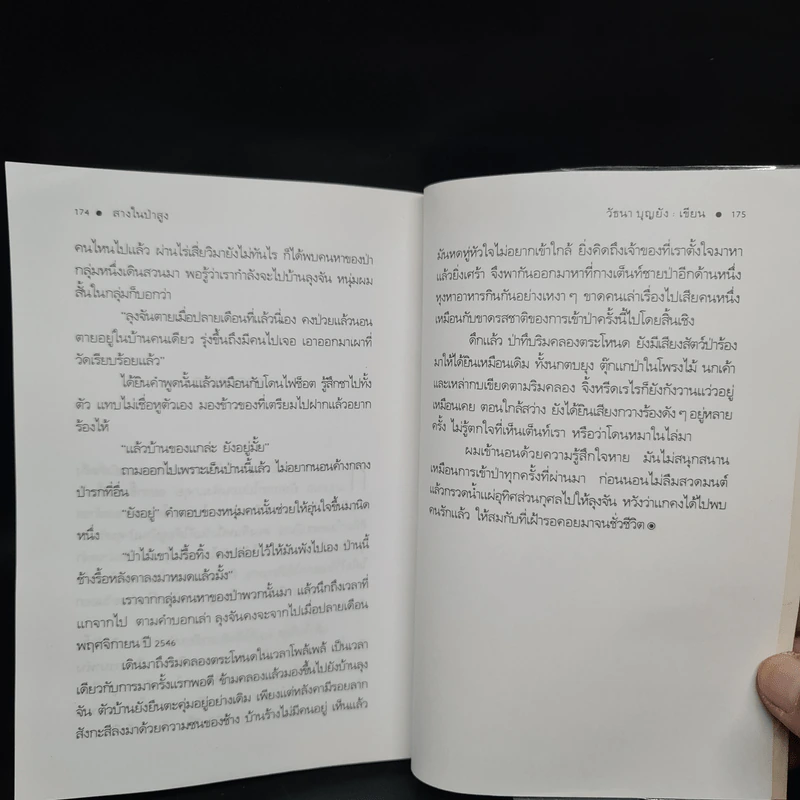 174 ● สางในป่าสูง
คนไหนไปแล้ว ผ่านไร่เสี่ยวิมายังไม่ทันไร ก็ได้พบคนหาของป่า
กลุ่มหนึ่งเดินสวนมา พอรู้ว่าเรากำลังจะไปบ้านลุงจัน หนุ่มผม
สั้นในกลุ่มก็บอกว่า
“ลุงจันตายเมื่อปลายเดือนที่แล้วนี่เอง คงป่วยแล้วนอน
ตายอยู่ในบ้านคนเดียว รุ่งขึ้นถึงมีคนไปเจอ เอาออกมาเผาที่
วัดเรียบร้อยแล้ว”
ได้ยินคำพูดนั้นแล้วเหมือนกับโดนไฟช็อต รู้สึกชาไปทั้ง
ตัว แทบไม่เชื่อหูตัวเอง มองข้าวของที่เตรียมไปฝากแล้วอยาก
ร้องไห้
“แล้วบ้านของแกล่ะ ยังอยู่มั้ย”
ถามออกไปเพราะเย็นป่านนี้แล้ว ไม่อยากนอนค้างกลาง
ป่ารกที่อื่น
“ยังอยู่” คำตอบของหนุ่มคนนั้นช่วยให้อุ่นใจขึ้นมานิด
หนึ่ง
“ป่าไม้เขาไม่รื้อทิ้ง คงปล่อยไว้ให้มันพังไปเอง ป่านนี้
ช้างรื้อหลังคาลงมาหมดแล้วมั้ง”
เราจากกลุ่มคนหาของป่าพวกนั้นมา แล้วนึกถึงเวลาที่
แกจากไป ตามคำบอกเล่า ลุงจันคงจะจากไปเมื่อปลายเดือน
พฤศจิกายน ปี 2546
เดินมาถึงริมคลองตระโหนดในเวลาโพล้เพล้ เป็นเวลา
เดียวกับการมาครั้งแรกพอดี ข้ามคลองแล้วมองขึ้นไปยังบ้านลุง
จัน ตัวบ้านยังยืนตะคุ่มอยู่อย่างเดิม เพียงแต่หลังคามีรอยลาก
สังกะสีลงมาด้วยความซนของช้าง บ้านร้างไม่มีคนอยู่ เห็นแล้ว
วัธนา บุญยัง : เขียน ● 175
มันหดหู่หัวใจไม่อยากเข้าใกล้ ยิ่งคิดถึงเจ้าของที่เราตั้งใจมาหา
แล้วยิ่งเศร้า จึงพากันออกมาหาที่กางเต็นท์ชายป่าอีกด้านหนึ่ง
หุงหาอาหารกินกันอย่างเหงา ๆ ขาดคนเล่าเรื่องไปเสียคนหนึ่ง
เหมือนกับขาดรสชาติของการเข้าป่าครั้งนี้ไปโดยสิ้นเชิง
ดึกแล้ว ป่าทึบริมคลองตระโหนด ยังมีเสียงสัตว์ป่าร้อง
มาให้ได้ยินเหมือนเดิม ทั้งนกตบยุง ตุ๊กแกป่าในโพรงไม้ นกเค้า
และเหล่ากบเขียดตามริมคลอง จิ้งหรีดเรไรก็ยังกังวานแว่วอยู่
เหมือนเคย ตอนใกล้สว่าง ยังได้ยินเสียงกวางร้องดัง ๆ อยู่หลาย
ครั้ง ไม่รู้ตกใจที่เห็นเต็นท์เรา หรือว่าโดนหมาในไล่มา
ผมเข้านอนด้วยความรู้สึกใจหาย มันไม่สนุกสนาน
เหมือนการเข้าป่าทุกครั้งที่ผ่านมา ก่อนนอนไม่ลืมสวดมนต์
แล้วกรวดน้ำแผ่อุทิศส่วนกุศลไปให้ลุงจัน หวังว่าแกคงได้ไปพบ
คนรักแล้ว ให้สมกับที่เฝ้ารอคอยมาจนชั่วชีวิต ◉